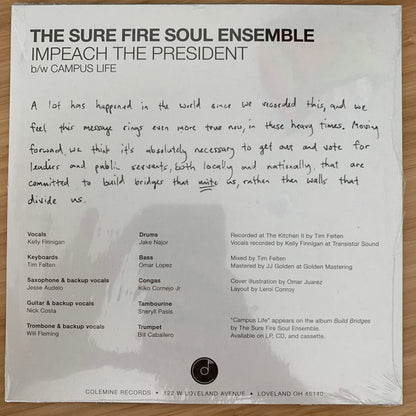 THE SURE FIRE SOUL ENSEMBLE
IMPEACH THE PRESIDENT
b/w CAMPUS LIFE
A lot has happened in the world since we recorded this, and we
feel this message rings even more true now, in these heavy times. Moving
forward, we think it's absolutely necessary to get out and vote for
leaders and public servants, both locally and nationally, that are
committed to build bridges that unite us, rather than walls that
divide us.
Vocals
Kelly Finnigan
Keyboards
Tim Felten
Saxophone & backup vocals
Jesse Audelo
Guitar & backup vocals
Nick Costa
Trombone & backup vocals
Will Fleming
Drums
Jake Najor
Bass
Omar Lopez
Congas
Kiko Cornejo Jr
Tambourine
Sheryll Pasis
Trumpet
Bill Caballero
Recorded at The Kitchen II by Tim Felten
Vocals recorded by Kelly Finnigan at Transistor Sound
Mixed by Tim Felten
Mastered by JJ Golden at Golden Mastering
Cover illustration by Omar Juarez
Layout by Leroi Conroy
"Campus Life" appears on the album Build Bridges
by The Sure Fire Soul Ensemble.
Available on LP, CD, and cassette.
COLEMINE RECORDS • 122 W LOVELAND AVENUE • LOVELAND OH 45140